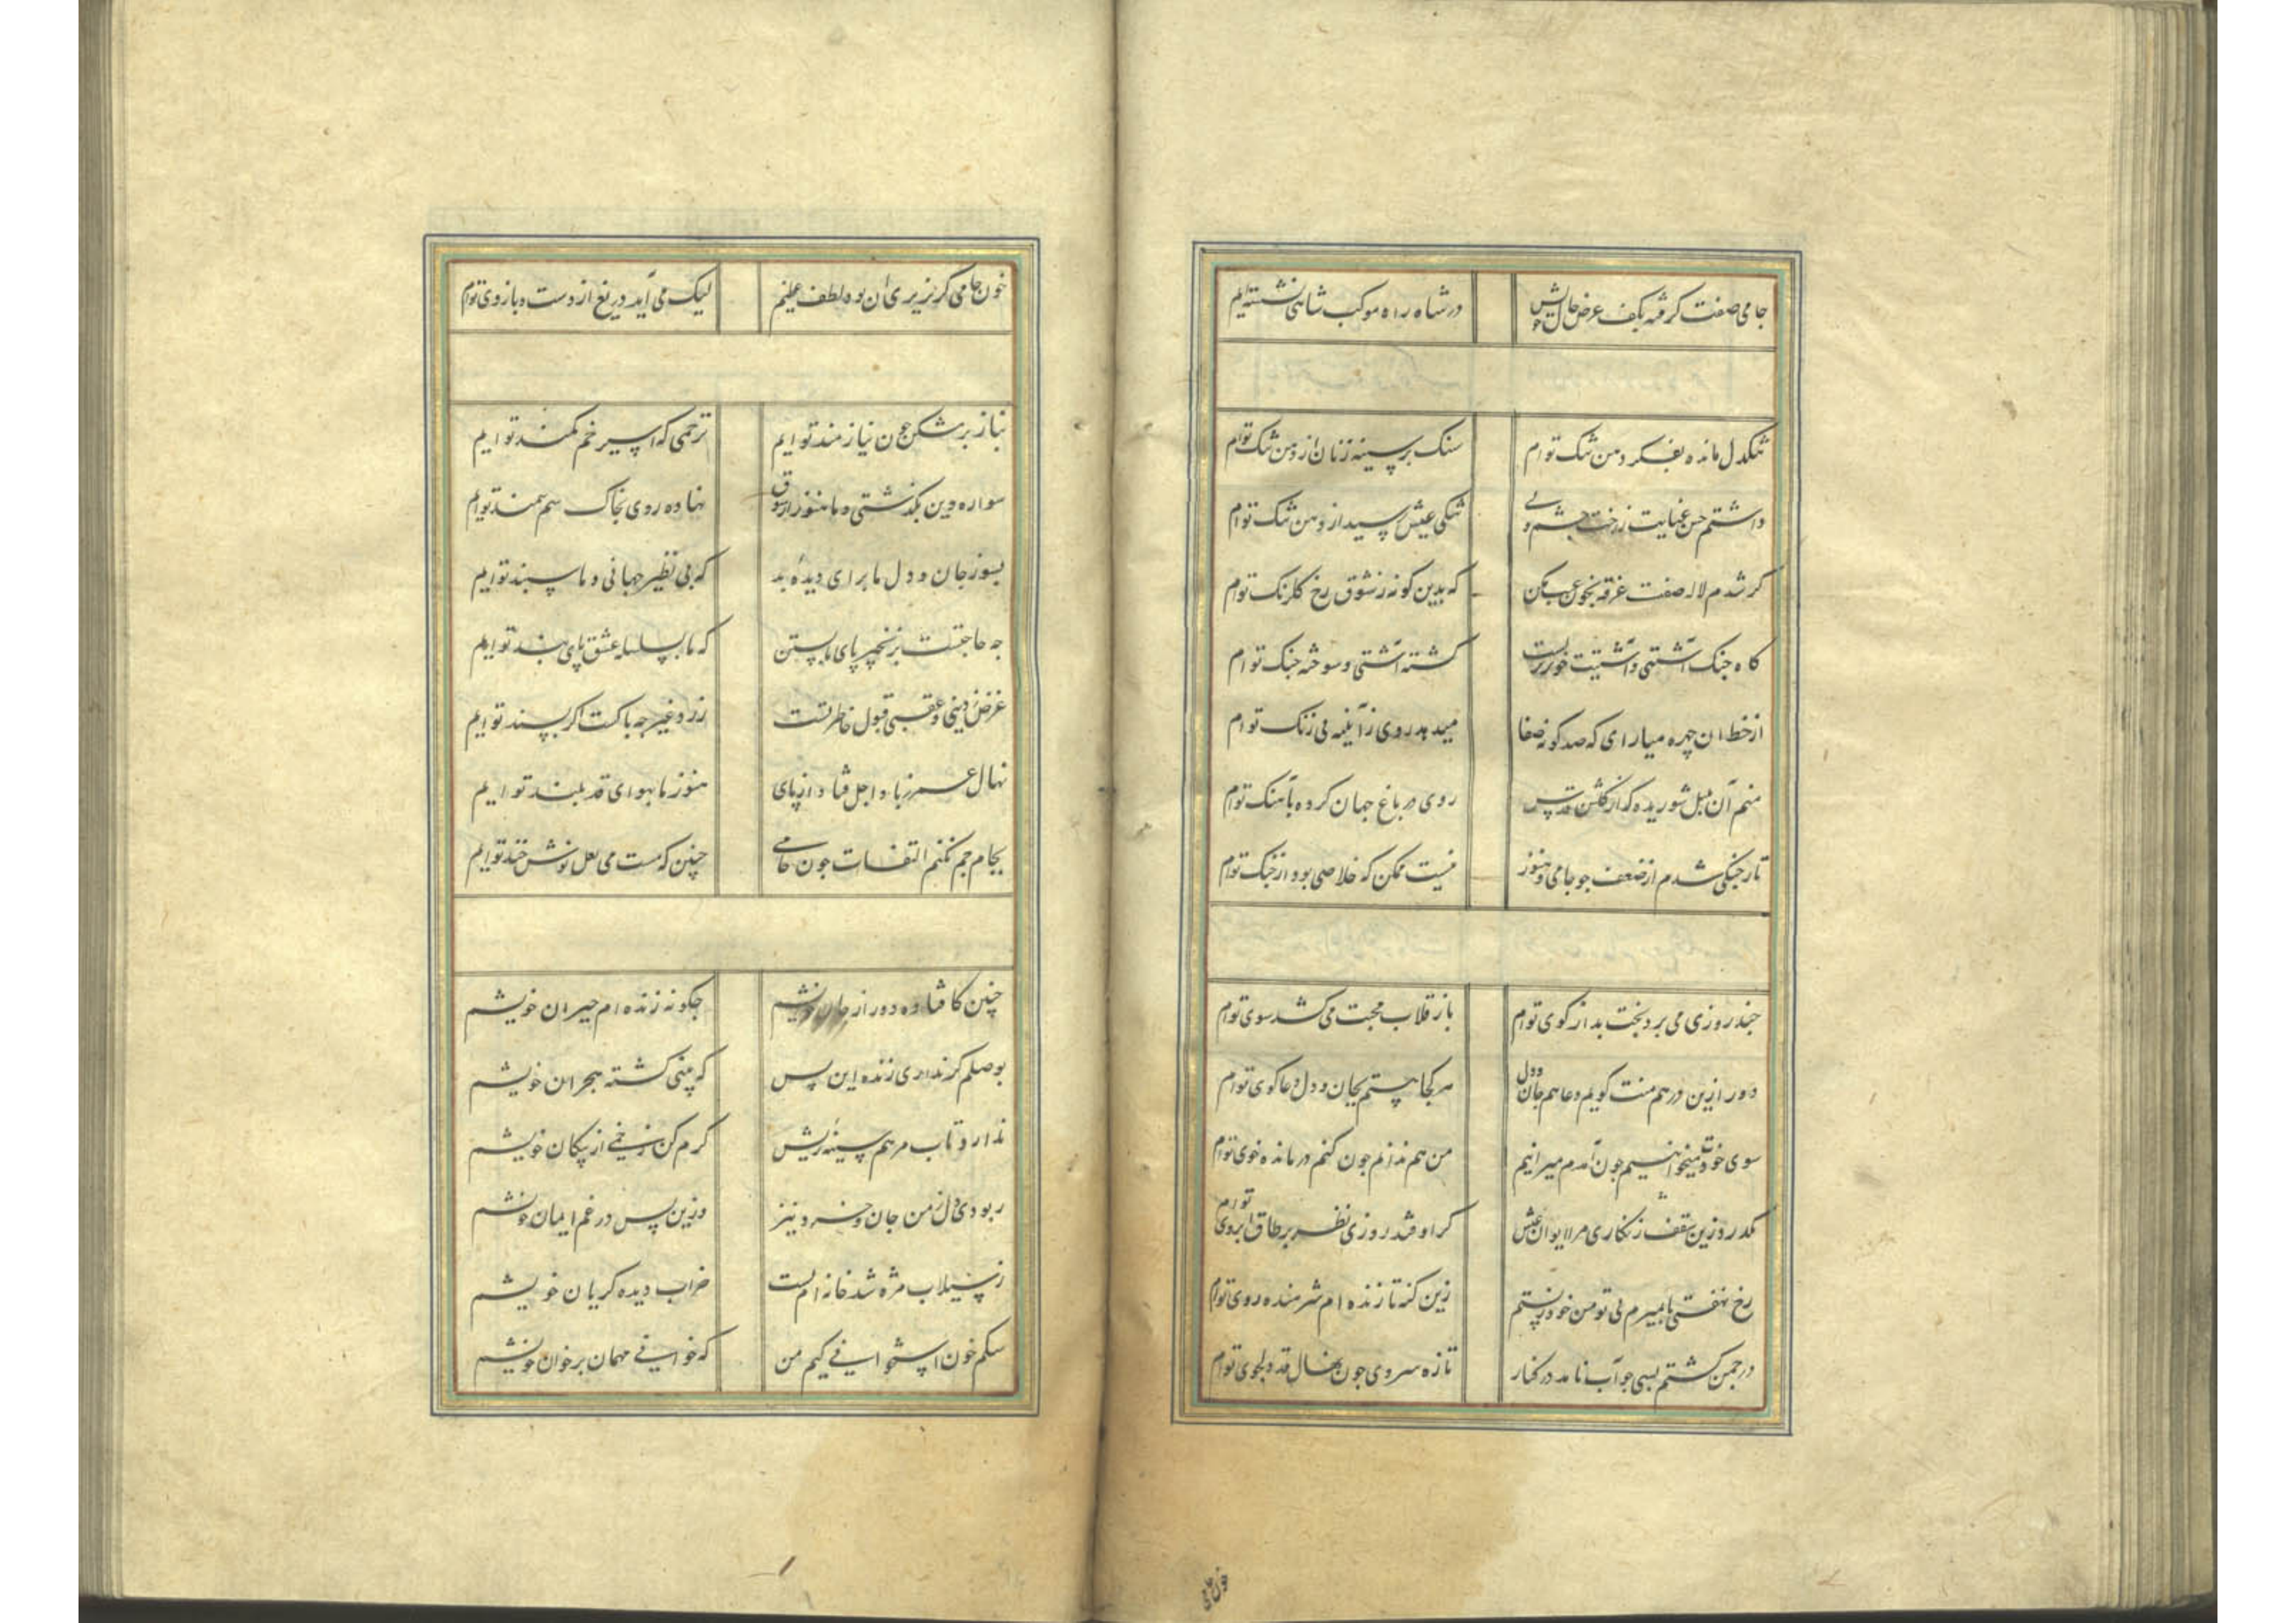 جامی صفت کرفته بکف عرض حال خویش در شاه راه موکب شاهی نشسته ایم
تنکدل مانده بفکر دهن تنک توام سنک بر سینه زنان از دهن تنک توام
داشتم حسن عنایت ز رخت چشم ولی تنکی عیش رسید از دهن تنک توام
کر شدم لاله صفت غرقه بخون عیب مکن که بدین کونه ز شوق رخ کلرنک توام
کاه جنک آشتی و آشتیت خون ریزست کشته آشتی و سوخته جنک توام
از خط ان چهره میارای که صد کونه صفا میدهد روی ز آیینه بی زنک توام
منم آن بلبل شوریده که از کلشن قدس روی در باغ جهان کرده بآهنک توام
تار جنکی شدم از ضعف جو جامی و هنوز نیست ممکن که خلاصی بود از جنک توام
جند روزی می برد بخت بد از کوی توام باز قلاب محبت می کشد سوی توام
دور ازین در هم منت کویم دعا هم جان و دل هر کجا هستم بجان و دل دعا کوی توام
سوی خودت میخوانیم جون آمدم میرانیم من هم ندانم جون کنم درمانده خوی توام
بکذرد زین سقف زنکاری مرا ایوان عیش کر اوفتد روزی نظر بر طاق ابروی توام
رخ نهفتی تا بمیرم بی تو من خود زیستم زین کنه تا زنده ام شرمنده روی توام
در جمن کشتم بسی جو آب نامد در کنار تازه سروی جون نهال قد دلجوی توام
خون جامی
خون جامی کر بریزی ان بود لطف عظیم لیک می آید دریغ از دست و بازوی توام
بناز بر مشکن جون نیازمند توایم ترحمی که اسیر خم کمند توایم
سواره دین بکذشتی و ما هنوز از شوق نهاده روی بخاک سم سمند توایم
بسوز جان و دل ما برای دیده بد که بی نظیر جهانی و ما سپند توایم
جه حاجتست بزنجیر پای ما بستن که ما بسلسله عشق پای بند توایم
غرض ز دینی و عقبی قبول خاطر تست ز رد غیر جه باکست اکر پسند توایم
نهال عمر ز باد اجل فتاد از پای هنوز ما بهوای قد بلند توایم
بجام جم نکنم التفات جون جامی چنین که مست می لعل نوش خند توایم
چنین کافتاده دور از جان خویشم جکونه زنده ام حیران خویشم
بوصلم کر نداری زنده این بس که بینی کشته هجران خویشم
ندارد تاب مرهم سینه ریش کرم کن زخمی از پیکان خویشم
ربودی دل ز من جان و خرد نیز وزین پس در غم ایمان خویشم
ز سیلاب مژه شد خانه ام پست خراب دیده کریان خویشم
سکم خون استخوانی کیم من که خوانی مهمان بر خوان خویشم